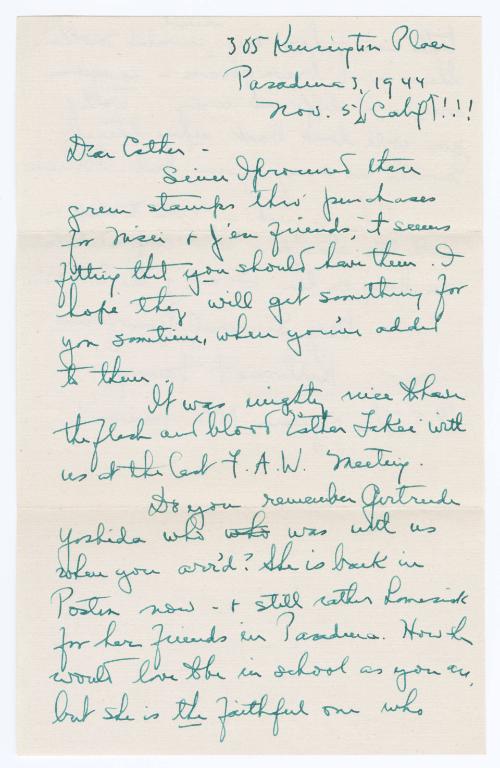 305 Kensington Place
Pasadena 3, 1944
Nov. 5, Calif!!!
Dear Esther -
Since I procured these
green stamps thro' purchases
for Nisei & J'en friends it seems
fitting that you should have them. I
hope they will get something for
you sometime, when you've added
to them.
It was mighty nice to have
the flesh and blood Esther Takei with
us at the last F.A.W. Meeting.
Do you remember Gertrude
Yoshida who who was with us
when you arr'd? She is back in
Poston now - & still rather homesick
for her friends in Pasadena. How she
would love to be in school as you are,
but she is the faithful one who